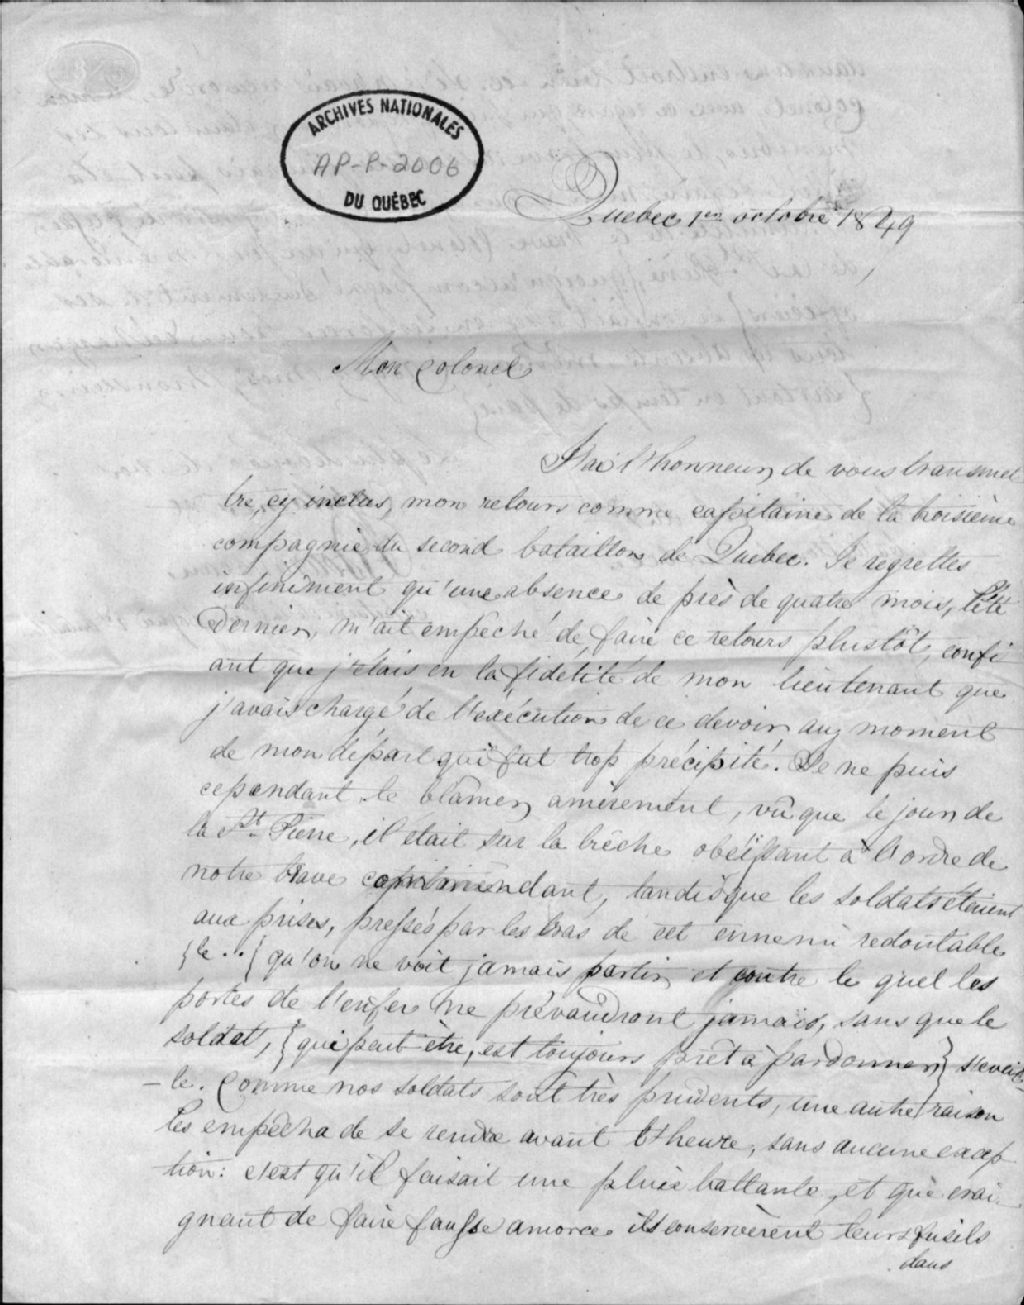 ARCHIVES NATIONALES
AP-P-2006
DU QUÉBEC
Quebec, 1er octobre 1849
Mon Colonel
J'ai l'honneur de vous transmet
tre, cy inclus, mon retours comme capitaine de la troisième
compagnie du second bataillon de Quebec. Je regrettes
infiniment qu'une absence de près de quatre mois, l'été
dernier, m'ait empêché de faire ce retours plustôt, confi
ant que j'étais en la fidélité de mon lieutenant que
j'avais chargé de l'exécution de ce devoir au moment
de mon départ qui fut trop précipité. Je ne puis
cependant le blâmer amèrement, vû que le jour de
la St. Pierre, il était sur la brêche obéissant à l'ordre de
notre brave commendant, tandisque les soldats étaient
aux prises, pressés par les bras de cet ennemi redoutable
{le ..} qu'on ne voit jamais partir et contre le quel les
portes de l'enfer ne prévaudront jamais, sans que le
soldat, {qui peut être, est toujours prêt à pardonner} s'éveil
-le. Comme nos soldats sont très prudents, une autre raison
les empêcha de se rendre avant l'heure, sans aucune excep
tion: c'est qu'il faisait une pluie battante, et que crai
gnant de faire fausse amorce ils conservèrent leurs fusils
dans